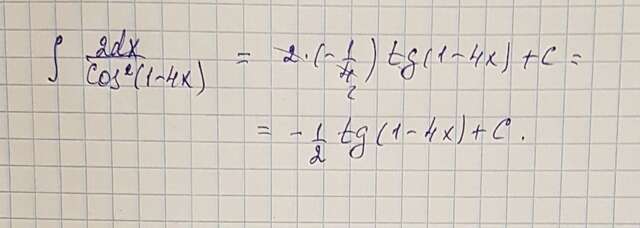 ∫ 2dx / cos²(1-4x) = 2·(-1/4) tg(1-4x) + C =
= -1/2 tg(1-4x) + C.